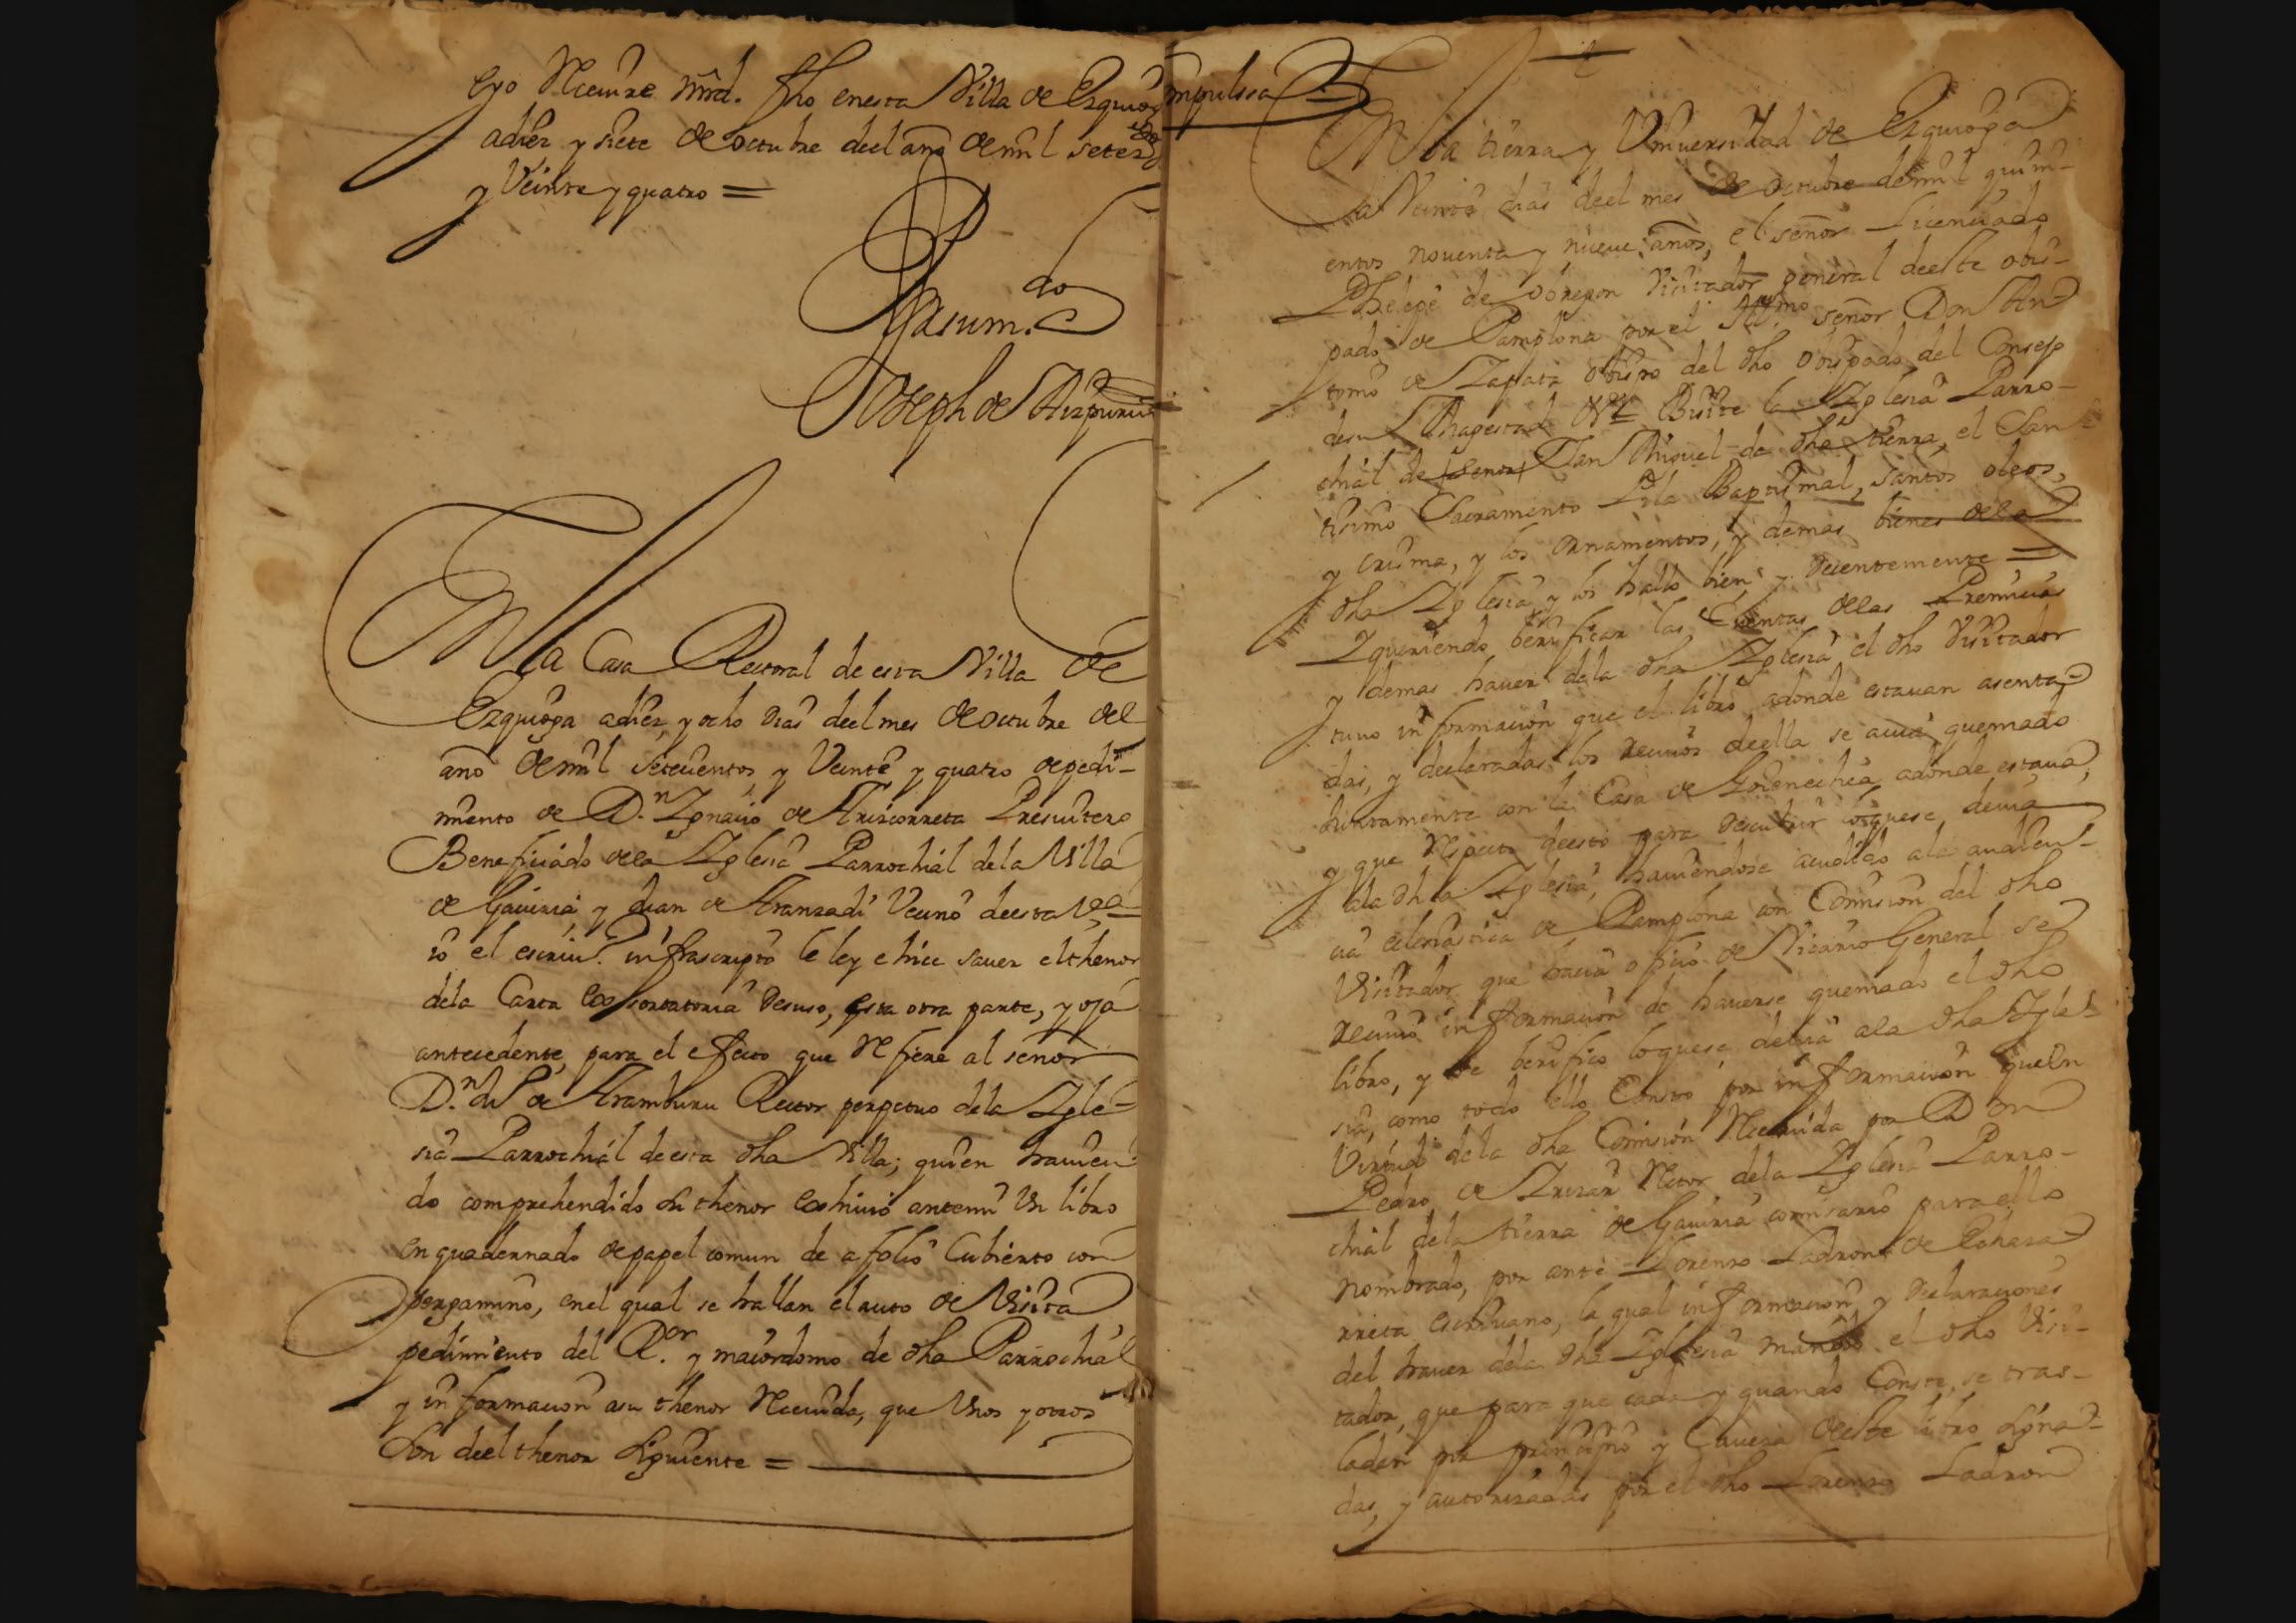 eyo Receuire mrd. fho enesta Villa de Ezquioga
adiez y siete de octubre deel año de mil setezos
y Veinte y quatro =
Asum.do
Joseph de Aizpuru
En la Casa Rectoral de esta Villa de
Ezquioga adiez y ocho dias deel mes de octubre del
año de mil setecientos y Veinte y quatro de pedi-
miento de D.n Ignacio de Arizcorreta Presuitero
Beneficiado dela Iglesia Parrochial dela Villa
de Gauiria y Juan de Aranzadi Vecino deesta Va
io el escriu.o infrascripto le ley e hice sauer elthenor
dela Carta Exsortatoria desuso, esta otra parte, y oja
antecedente, para el efecto que Refiere al señor
D.n de Aramburu Rector perpetuo dela Igle-
sia Parrochial deesta dha Villa; quien hauien-
do comprehendido su thenor exhiuio antemi Un libro
enquadernado de papel comun de a folio Cubierto con
pergamino, enel qual se hallan el auto de Visita
pedimiento del R.or y maiordomo de dha Parrochial
y informacion asu thenor Receuida, que Unos y otros
son deel thenor siguiente =
Compulssa
En la tierra y Vniuersidad de Ezquioga
a Veinte dias deel mes de octubre de mil quini-
entos nouenta y nueue años, el señor Licenciado
Phelepe de obregon Visitador general deeste obis-
pado de Pamplona por el Illmo señor Don An
tonio de Zapata obispo del dho obispado del Consejo
desu Magestad &a Visite la Iglesia Parro-
chial de señor San Miguel de dha tierra, el San-
tisimo Sacramento Pila Baptismal, santos oleos,
y crisma, y los ornamentos, y demas bienes dela
dha Iglesia y los hallo bien, y decentemente =
I queriendo berificar las Cuentas delas Premicias
y demas hauer dela dha Iglesia el dho Visitador
tuuo informacion que el libro adonde estauan asenta-
das, y declaradas los reciuos deella se auia quemado
Juntamente con la Casa de Goienechea adonde estaua,
y que Respecto deesto para descubrir loquese deuia
ala dha Iglesia, hauiendose acudido ala audien-
cia eclesiastica de Pamplona con Comision del dho
Visitador que hacia oficio de Vicario General se
reciuio informacion de hauerse quemado el dho
libro, y se berifico loquese deuia ala dha Igle-
sia, como todo ello Consto por informacion queen
Virtud dela dha Comision Receuida por Don
Pedro de Irizar Retor dela Iglesia Parro-
chial dela tierra de Gauiria comisario paraello
nombrado, por ante Lorenzo Ladron de Cohara
rreta escriuano, la qual informacion, y declaraciones
del hauer dela dha Iglesia mando el dho Visi-
tador, que para que cada y quando Conste, se tras-
laden por principio y Caueza deeste libro signa-
das, y autorizadas por el dho Lorenzo Ladron